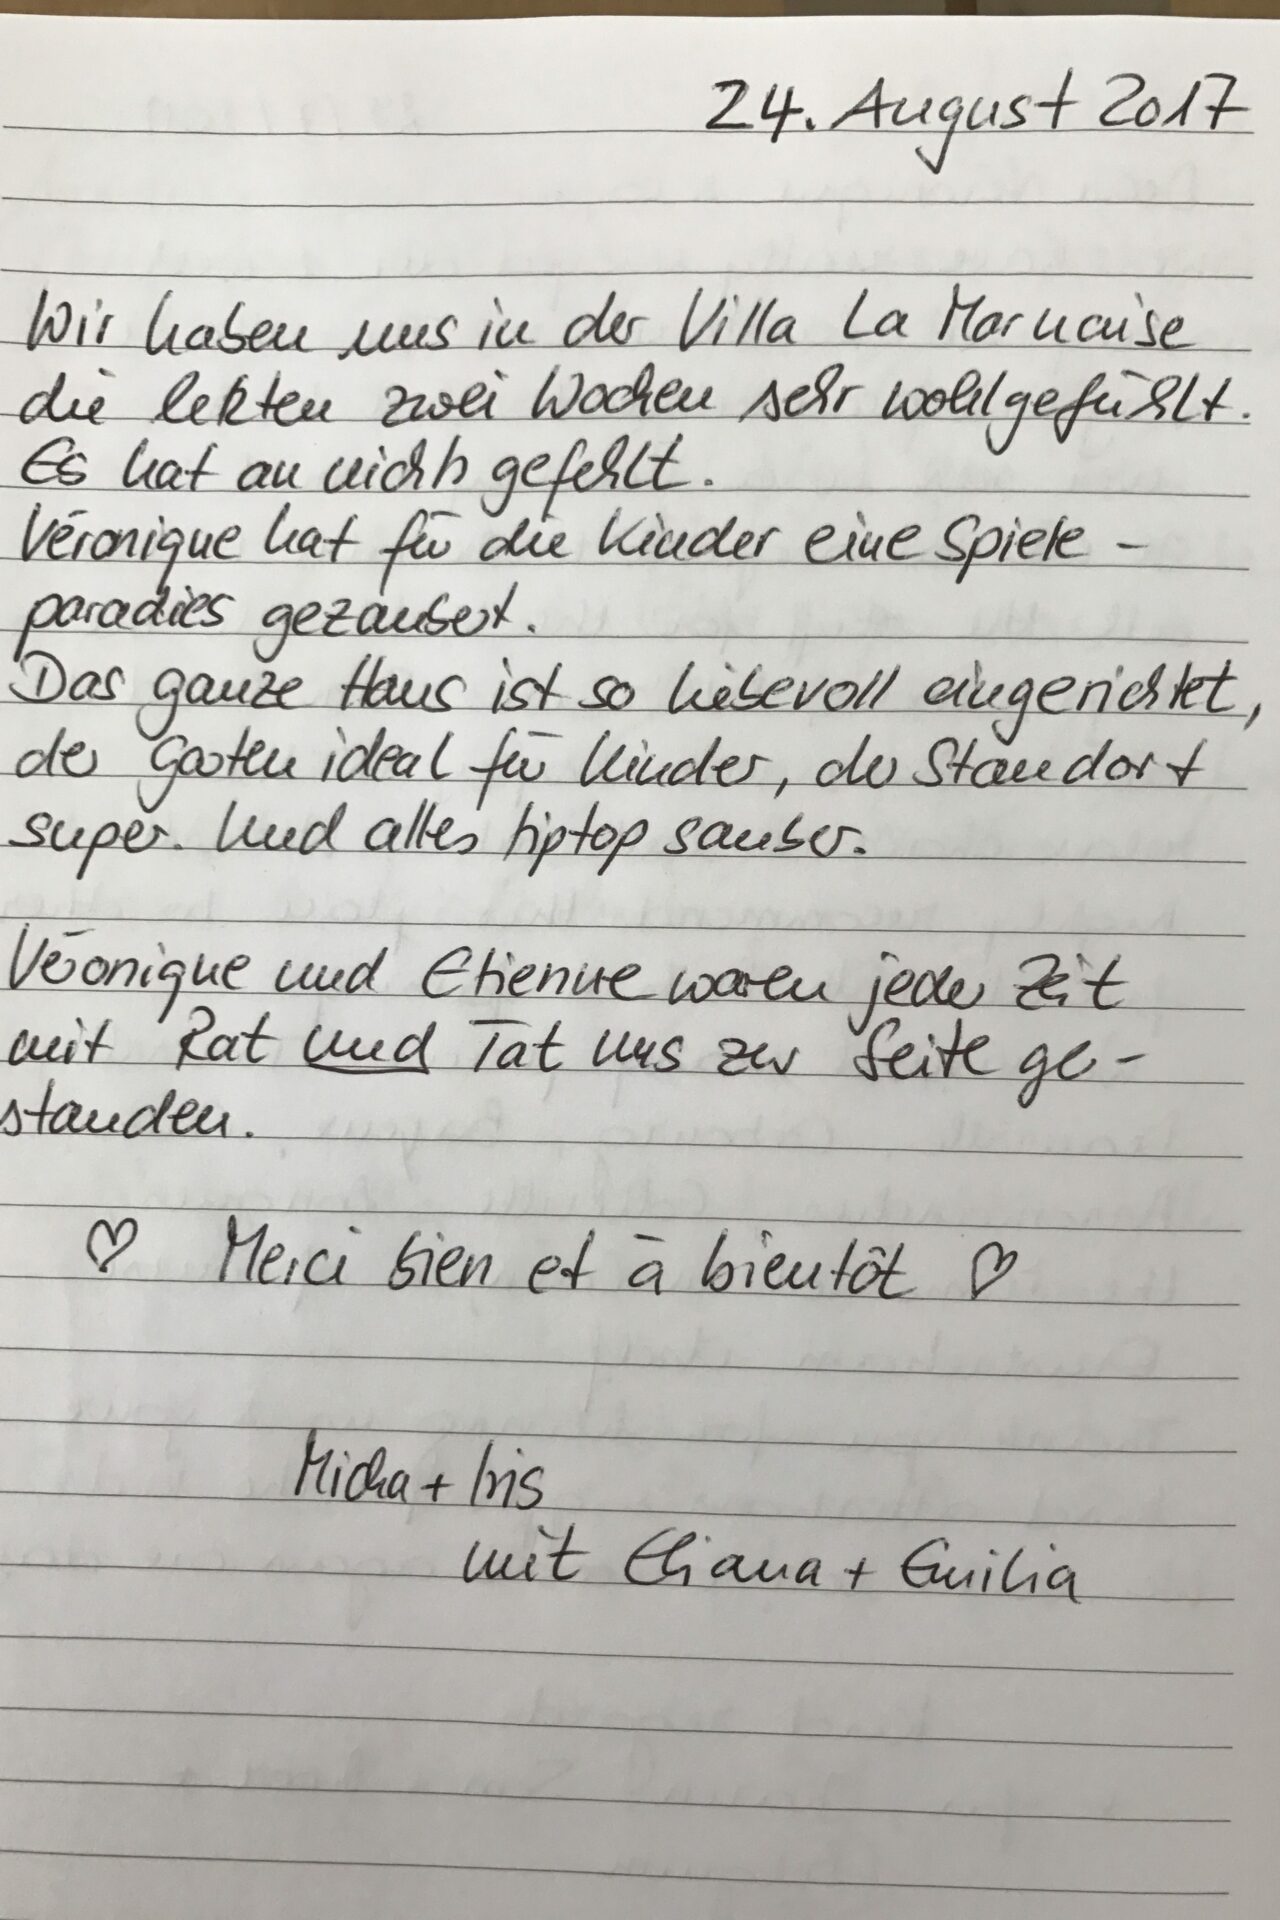 24. August 2017
Wir haben uns in der Villa La Marnaise
die letzten zwei Wochen sehr wohlgefühlt.
Es hat an nichts gefehlt.
Véronique hat für die Kinder eine Spiele-
paradies gezaubert.
Das ganze Haus ist so liebevoll eingerichtet,
der Garten ideal für Kinder, der Standort
super. Und alles tiptop sauber.
Véronique und Etienne waren jeder Zeit
mit Rat und Tat uns zur Seite ge-
standen.
♡ Merci bien et à bientôt ♡
Micha + Iris
mit Eliana + Emilia